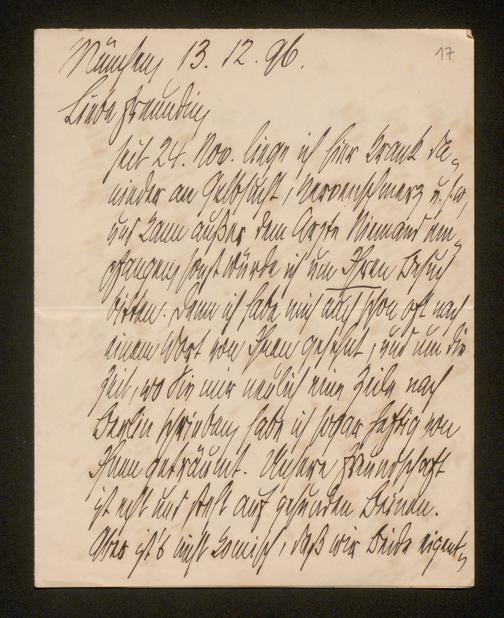 17
München, 13. 12. 96.
Liebe Freundin,
seit 24. Nov. liege ich hier krank da-
nieder an Gelbsucht, Nervenschmerz u. s. w,
und kann außer dem Arzte Niemand em-
pfangen, sonst würde ich um Ihren Besuch
bitten. Denn ich habe mich auch schon oft nach
einem Wort von Ihnen gesehnt, und um die
Zeit, wo Sie mir neulich eine Zeile nach
Berlin schrieben, habe ich sogar heftig von
Ihnen geträumt. Unsere Freundschaft
ist echt und steht auf gesunden Beinen.
Aber ist's nicht komisch, daß wir Beide eigent-